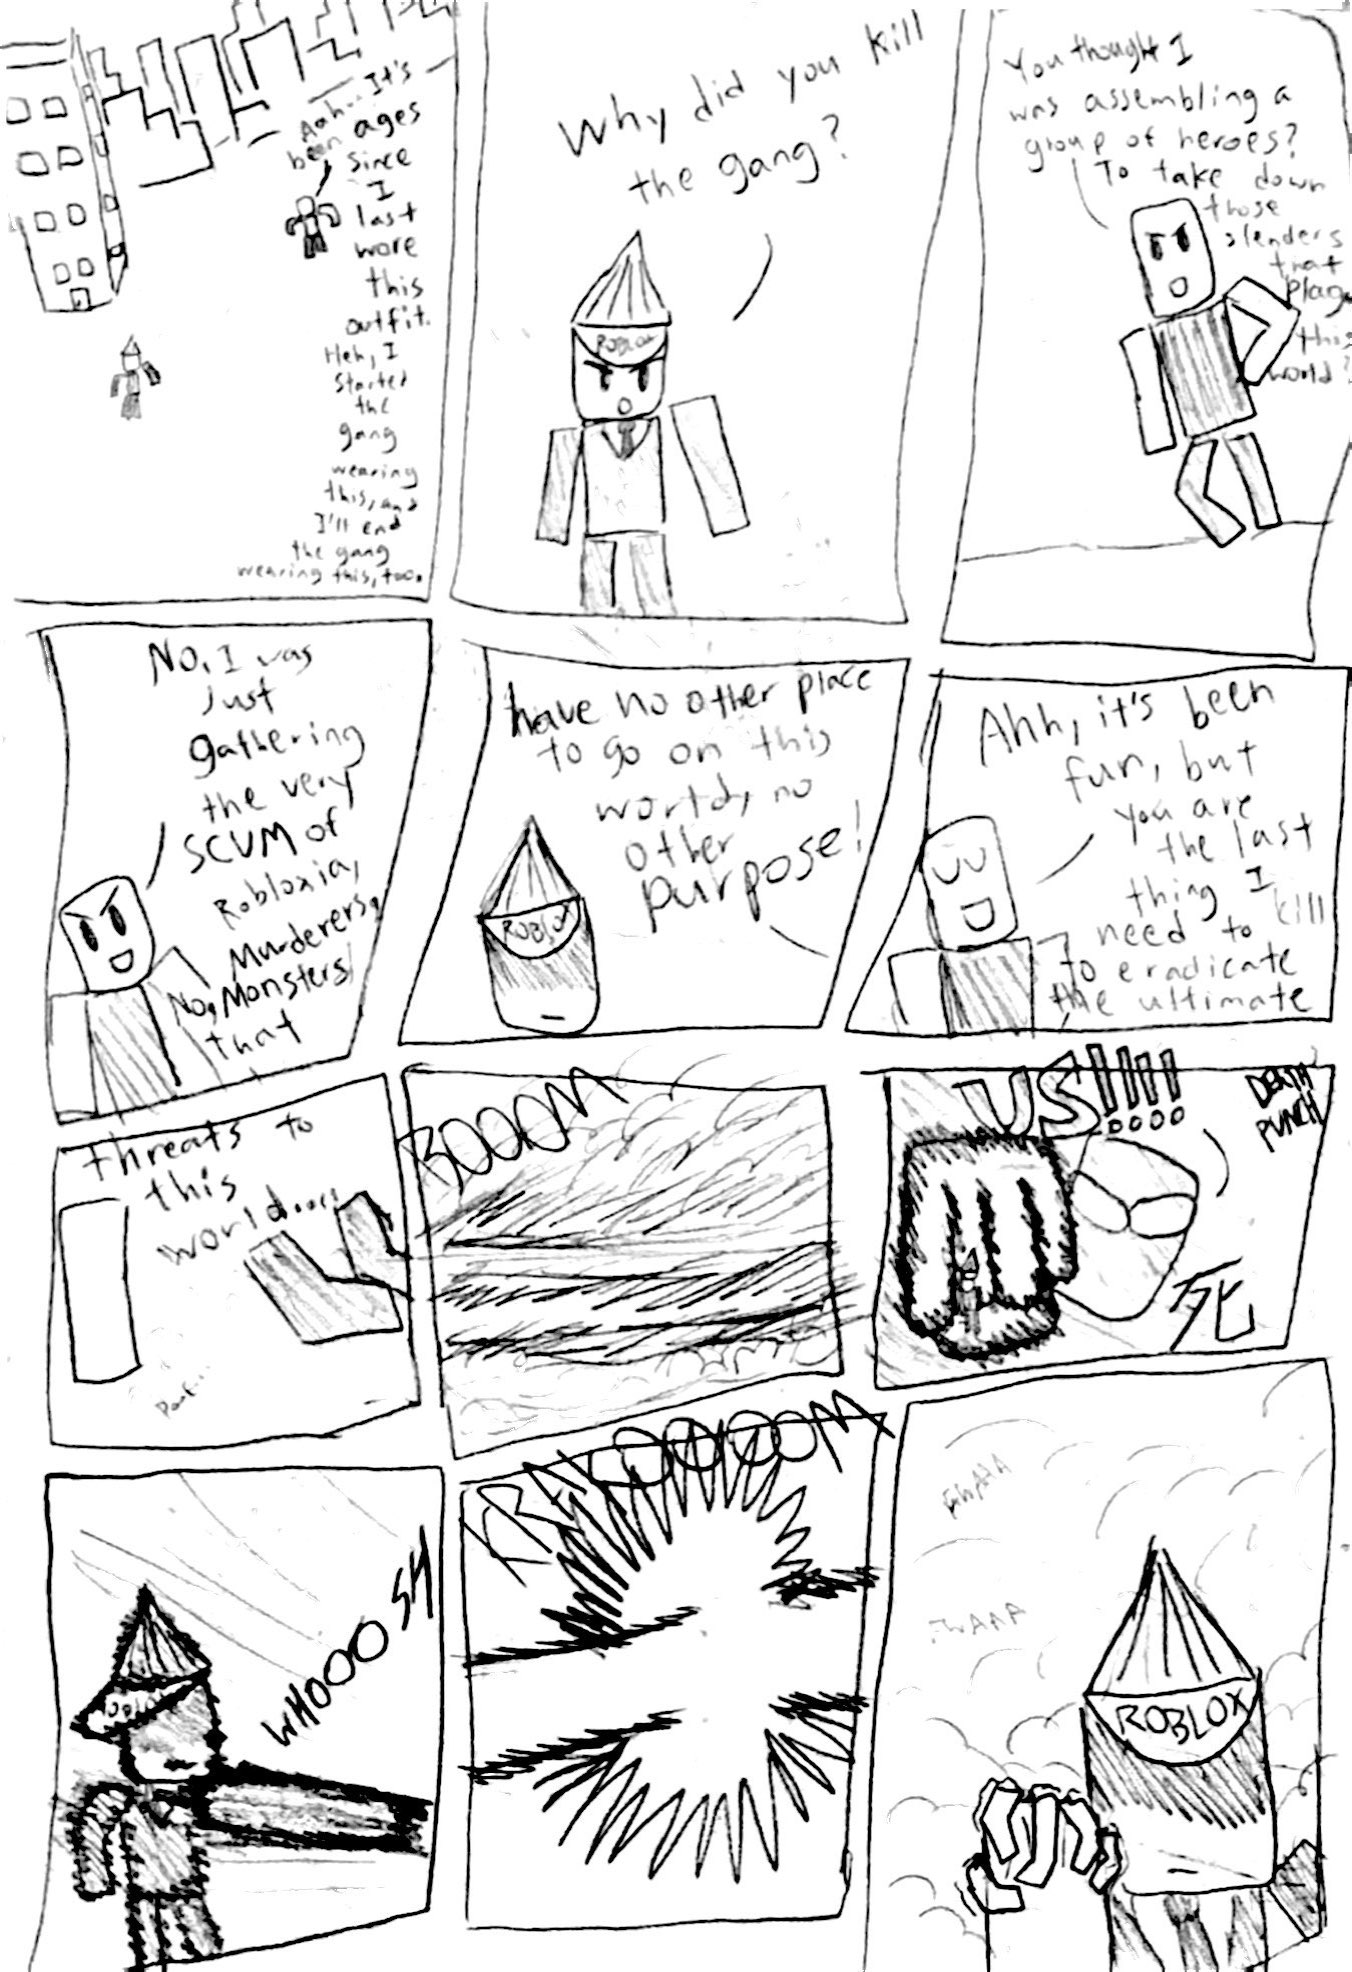 Aah... It's
been ages
since
I
last
wore
this
outfit.
Heh, I
started
the
gang
wearing
this, and
I'll end
the gang
wearing this, too.
Why did you kill
the gang?
ROBLOX
You thought I
was assembling a
group of heroes?
To take down
those
slenders
that
plag
this
world?
No, I was
just
gathering
the very
SCUM of
Robloxia,
Murderers,
No, Monsters
that
have no other place
to go on this
world, no
other
purpose!
ROBLOX
Ahh, it's been
fun, but
you are
the last
thing I
need to kill
to eradicate
the ultimate
threats to
this
world...
BOOOM
US!!!!!
DEATH
PUNCH
死
WHOOOSH
KRAOOOOOM
ROBLOX